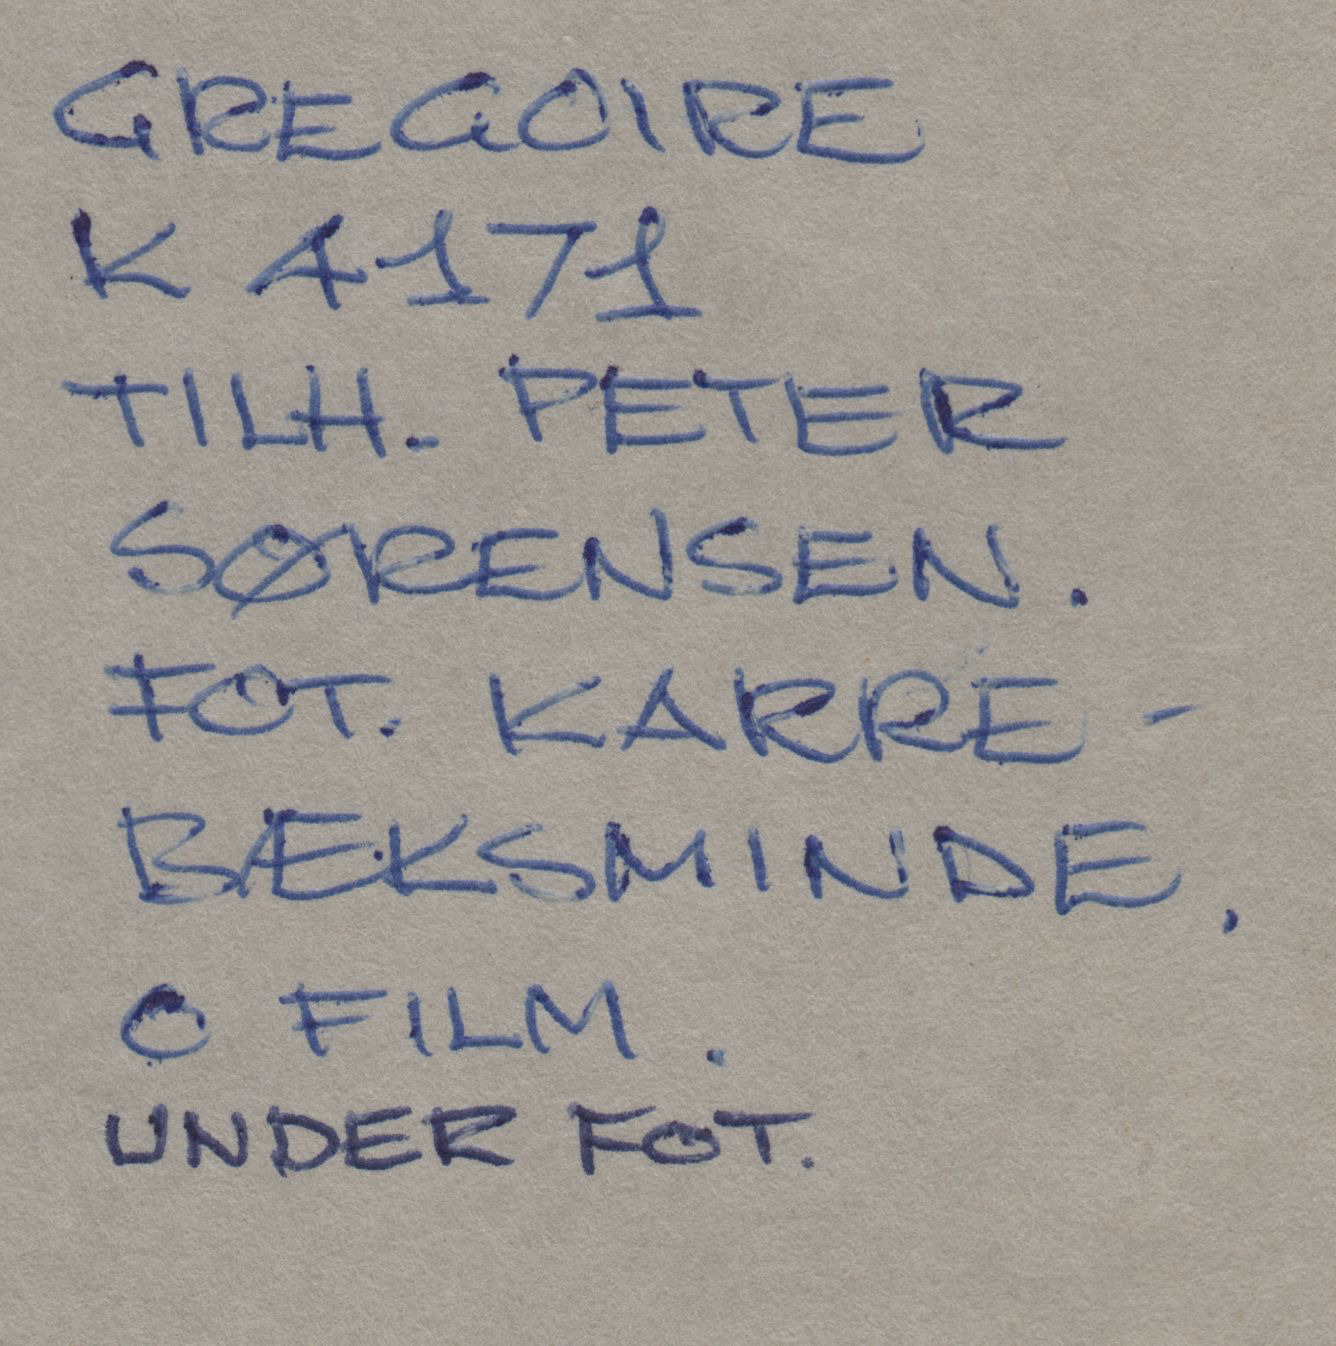 GREGOIRE
K 4171
TILH. PETER
SØRENSEN.
FOT. KARRE-
BÆKSMINDE.
O FILM.
UNDER FOT.